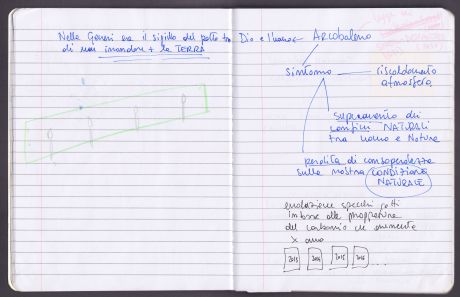 Nella Genesi era il sigillo del patto tra Dio e l'uomo - Arcobaleno
di non inondare + la TERRA
sintomo
riscaldamento
atmosfera
superamento dei
confini NATURALI
tra uomo e Natura
perdita di consapevolezza
sulla nostra CONDIZIONE
NATURALE
specchi rotti
in base alla
del carbonio che
x anno
2013 2014 2015 2016 ...